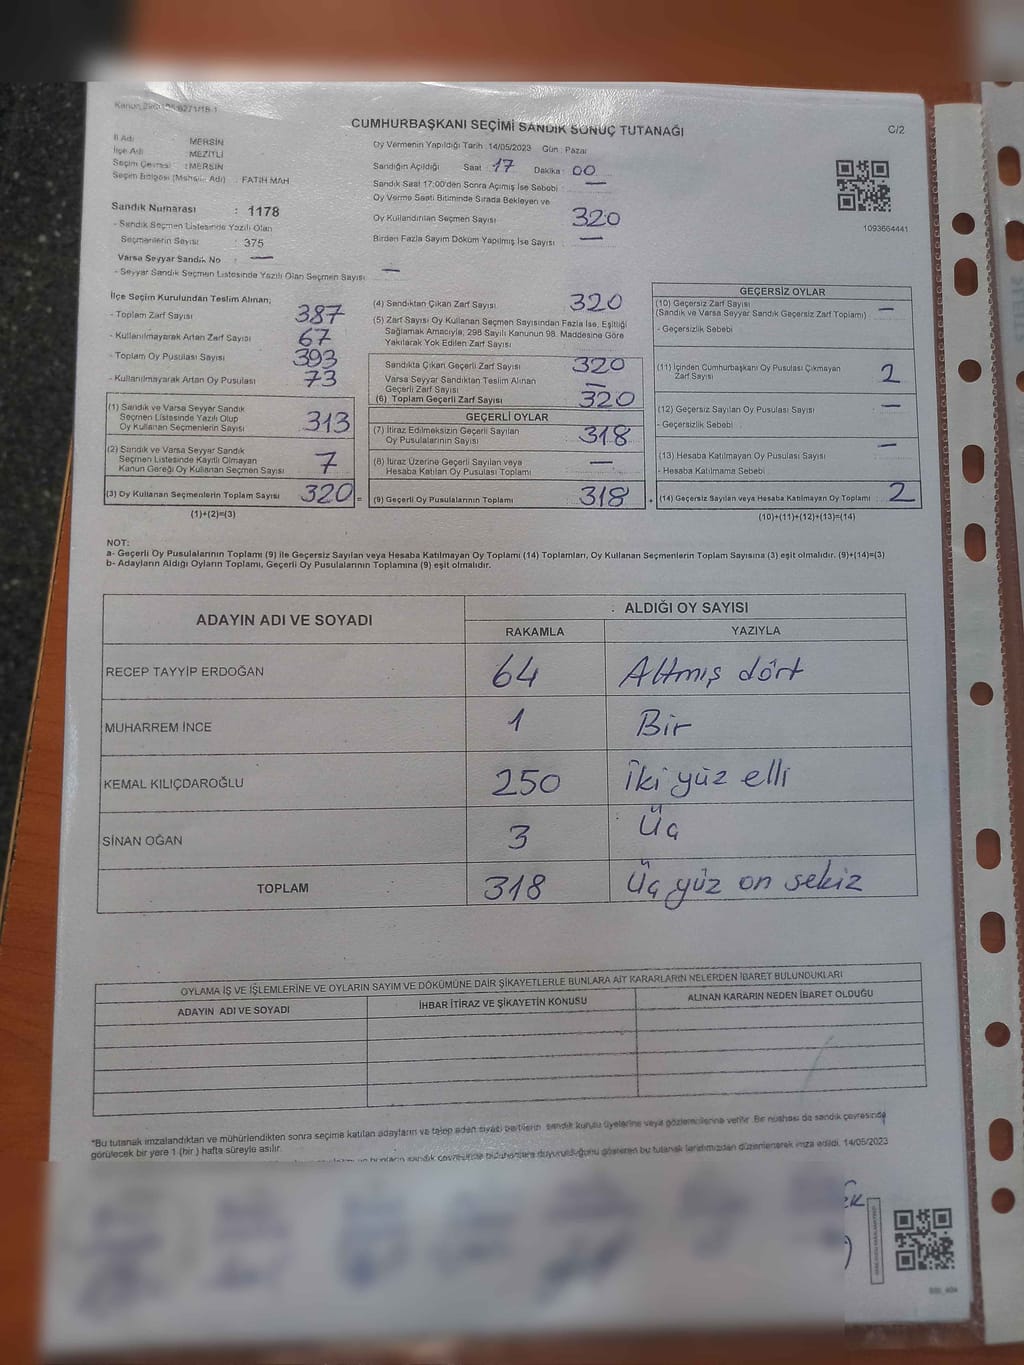 Kanun 298/105 6271/18-1
CUMHURBAŞKANI SEÇİMİ SANDIK SONUÇ TUTANAĞI
C/2
İl Adı : MERSİN
İlçe Adı : MEZİTLİ
Seçim Çevresi : MERSİN
Seçim Bölgesi (Mahalle Adı) : FATİH MAH
Sandık Numarası : 1178
- Sandık Seçmen Listesinde Yazılı Olan
Seçmenlerin Sayısı : 375
Varsa Seyyar Sandık No : —
- Seyyar Sandık Seçmen Listesinde Yazılı Olan Seçmen Sayısı —
Oy Vermenin Yapıldığı Tarih : 14/05/2023 Gün : Pazar
Sandığın Açıldığı Saat : 17 Dakika : 00
Sandık Saat 17:00'den Sonra Açılmış İse Sebebi : —
Oy Verme Saati Bitiminde Sırada Bekleyen ve
Oy Kullandırılan Seçmen Sayısı 320
Birden Fazla Sayım Döküm Yapılmış İse Sayısı : —
1093664441
İlçe Seçim Kurulundan Teslim Alınan;
- Toplam Zarf Sayısı 387
- Kullanılmayarak Artan Zarf Sayısı 67
- Toplam Oy Pusulası Sayısı 393
- Kullanılmayarak Artan Oy Pusulası 73
(1) Sandık ve Varsa Seyyar Sandık
Seçmen Listesinde Yazılı Olup
Oy Kullanan Seçmenlerin Sayısı 313
(2) Sandık ve Varsa Seyyar Sandık
Seçmen Listesinde Kayıtlı Olmayan
Kanun Gereği Oy Kullanan Seçmen Sayısı 7
(3) Oy Kullanan Seçmenlerin Toplam Sayısı 320 =
(1)+(2)=(3)
(4) Sandıktan Çıkan Zarf Sayısı 320
(5) Zarf Sayısı Oy Kullanan Seçmen Sayısından Fazla İse, Eşitliği
Sağlamak Amacıyla, 298 Sayılı Kanunun 98. Maddesine Göre
Yakılarak Yok Edilen Zarf Sayısı
Sandıkta Çıkan Geçerli Zarf Sayısı 320
Varsa Seyyar Sandıktan Teslim Alınan
Geçerli Zarf Sayısı —
(6) Toplam Geçerli Zarf Sayısı 320
GEÇERLİ OYLAR
(7) İtiraz Edilmeksizin Geçerli Sayılan
Oy Pusulalarının Sayısı 318
(8) İtiraz Üzerine Geçerli Sayılan veya
Hesaba Katılan Oy Pusulası Toplamı —
(9) Geçerli Oy Pusulalarının Toplamı 318 +
GEÇERSİZ OYLAR
(10) Geçersiz Zarf Sayısı
(Sandık ve Varsa Seyyar Sandık Geçersiz Zarf Toplamı) —
- Geçersizlik Sebebi
(11) İçinden Cumhurbaşkanı Oy Pusulası Çıkmayan
Zarf Sayısı 2
(12) Geçersiz Sayılan Oy Pusulası Sayısı —
- Geçersizlik Sebebi
(13) Hesaba Katılmayan Oy Pusulası Sayısı —
- Hesaba Katılmama Sebebi
(14) Geçersiz Sayılan veya Hesaba Katılmayan Oy Toplamı 2
(10)+(11)+(12)+(13)=(14)
NOT:
a- Geçerli Oy Pusulalarının Toplamı (9) ile Geçersiz Sayılan veya Hesaba Katılmayan Oy Toplamı (14) Toplamları, Oy Kullanan Seçmenlerin Toplam Sayısına (3) eşit olmalıdır. (9)+(14)=(3)
b- Adayların Aldığı Oyların Toplamı, Geçerli Oy Pusulalarının Toplamına (9) eşit olmalıdır.
ADAYIN ADI VE SOYADI
ALDIĞI OY SAYISI
RAKAMLA YAZIYLA
RECEP TAYYİP ERDOĞAN 64 Altmış dört
MUHARREM İNCE 1 Bir
KEMAL KILIÇDAROĞLU 250 İki yüz elli
SİNAN OĞAN 3 Üç
TOPLAM 318 Üç yüz on sekiz
OYLAMA İŞ VE İŞLEMLERİNE VE OYLARIN SAYIM VE DÖKÜMÜNE DAİR ŞİKAYETLERLE BUNLARA AİT KARARLARIN NELERDEN İBARET BULUNDUKLARI
ADAYIN ADI VE SOYADI
İHBAR İTİRAZ VE ŞİKAYETİN KONUSU
ALINAN KARARIN NEDEN İBARET OLDUĞU
*Bu tutanak imzalandıktan ve mühürlendikten sonra seçime katılan adayların ve talep eden siyasi partilerin sandık kurulu üyelerine veya gözlemcilerine verilir. Bir nüshası da sandık çevresinde
görülecek bir yere 1 (bir) hafta süreyle asılır.
sandık çevresinde bulunanlara duyurulduğunu gösteren bu tutanak tarafımızdan düzenlenerek imza edildi. 14/05/2023